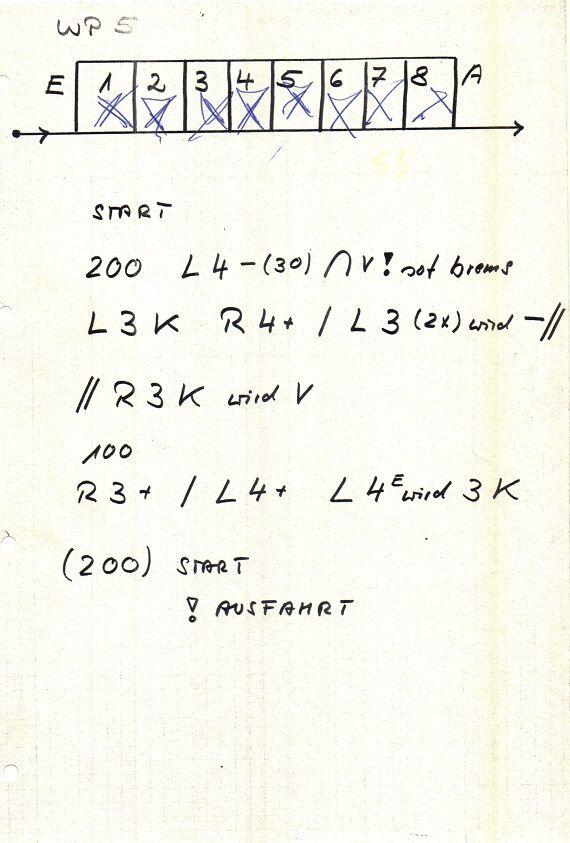 WP 5
E 1 2 3 4 5 6 7 8 A
START
200 L4-(30) ∩ V! sof brems
L3K R4+ / L3 (2x) wird -//
// R3K wird V
100
R3+ / L4+ L4ᴱ wird 3K
(200) START
! AUSFAHRT